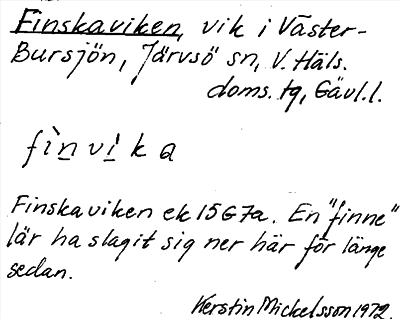 Finskaviken, vik i Väster-
Bursjön, Järvsö sn, V. Häls.
doms. tg, Gävl.l.
fìnvika
Finskaviken ek 15G7a. En "finne"
lär ha slagit sig ner här för länge
sedan.
Kerstin Mickelsson 1972.